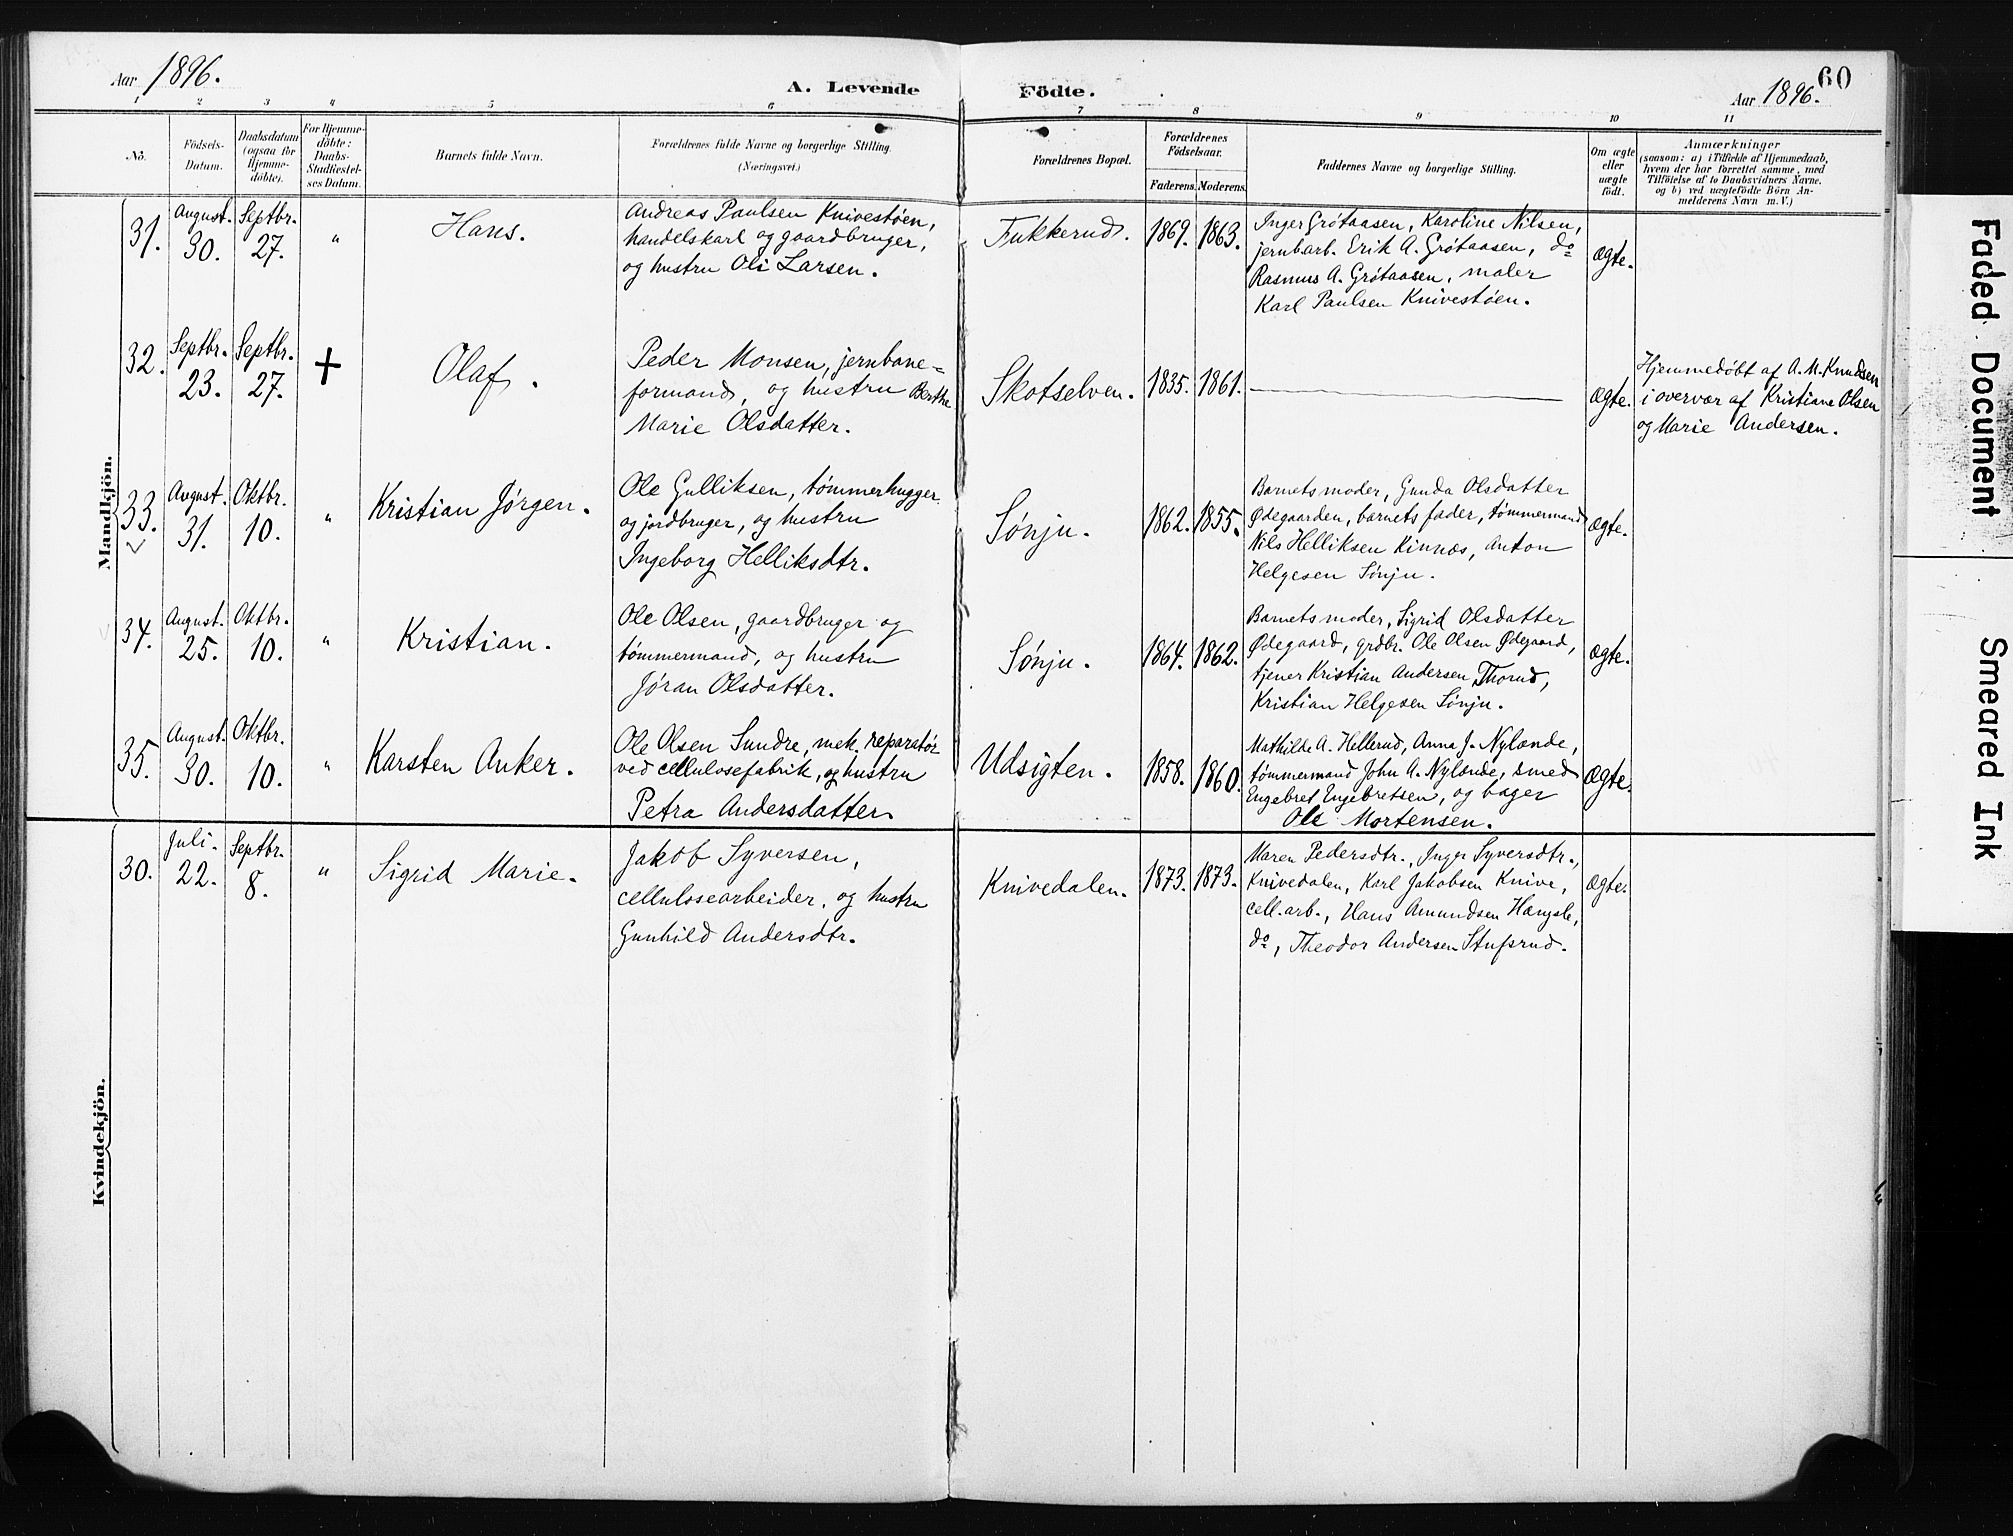 Aar 1896.
A. Levende Födte.
Aar 1896.
60
1 2 3 4 5 6 7 8 9 10 11
No.
Födsels-
Datum.
Daabsdatum
(ogsaa for
Hjemme-
döbte).
For Hjemme-
döbte:
Daabs-
Stadfæstel-
ses Datum.
Barnets fulde Navn.
Forældrenes fulde Navne og borgerlige Stilling.
(Næringsvei.)
Forældrenes Bopæl.
Forældrenes
Födselsaar.
Faderens. Moderens.
Faddernes Navne og borgerlige Stilling.
Om ægte
eller
uægte
födt.
Anmærkninger
(saasom: a) i Tilfælde af Hjemmedaab,
hvem der har forrettet samme, med
Tilföielse af to Daabsvidners Navne,
og b) ved uægtefödte Börn An-
melderens Navn m. V.)
Mandkjön.
31.
August.
30.
Septbr.
27.
"
Hans.
Andreas Paulsen Knivestøen,
handelskarl og gaardbruger,
og hustru Oli Larsen.
Fukkerud.
1869. 1863.
Inger Grøtaasen, Karoline Nilsen,
jernbarb. Erik A. Grøtaasen, do
Rasmus A. Grøtaasen, maler
Karl Paulsen Knivestøen.
Ægte.
32.
Septbr.
23.
Septbr.
27.
+
Olaf.
Peder Monsen, jernbane=
formand, og hustru Berthe
Marie Olsdatter.
Skotselven.
1835. 1861.
Ægte.
Hjemmedøbt af A. M. Knudsen
i overvær af Kristiane Olsen
og Marie Andersen.
33.
August.
31.
Oktbr.
10.
"
Kristian Jørgen.
Ole Gulliksen, tømmerhugger
og jordbruger, og hustru
Ingeborg Helliksdtr.
Sønju.
1862. 1855.
Barnets moder, Gunda Olsdatter
Ødegaarden, barnets fader, tømmermand
Nils Helliksen Kinnæs, Anton
Helgesen Sønju.
Ægte.
34.
August.
25.
Oktbr.
10.
"
Kristian.
Ole Olsen, gaardbruger og
tømmermand, og hustru
Jøran Olsdatter.
Sønju.
1864. 1862.
Barnets moder, Sigrid Olsdatter
Ødegaard, grdbr. Ole Olsen Ødegaard,
tjener Kristian Andersen Thorud,
Kristian Helgesen Sønju.
Ægte.
35.
August.
30.
Oktbr.
10.
"
Karsten Anker.
Ole Olsen Sundre, mek. reparatør
ved cellulosefabrik, og hustru
Petra Andersdatter.
Udsigten.
1858. 1860.
Mathilde A. Hellerud, Anna J. Nylænde,
tømmermand John A. Nylænde, smed
Engebret Engebretsen, og bager
Ole Mortensen.
Ægte.
Kvindekjön.
30.
Juli.
22.
Septbr.
8.
"
Sigrid Marie.
Jakob Syversen,
cellulosearbeider, og hustru
Gunhild Andersdtr.
Knivedalen.
1873. 1873.
Maren Pedersdtr., Inger Syversdtr.,
Knivedalen, Karl Jakobsen Knive,
cell. arb., Hans Amundsen Hængsle,
do, Theodor Andersen Stufsrud.
Ægte.
Faded Document
Smeared Ink